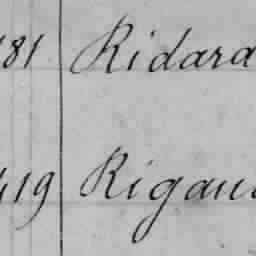 181 Ridard
419 Rigau